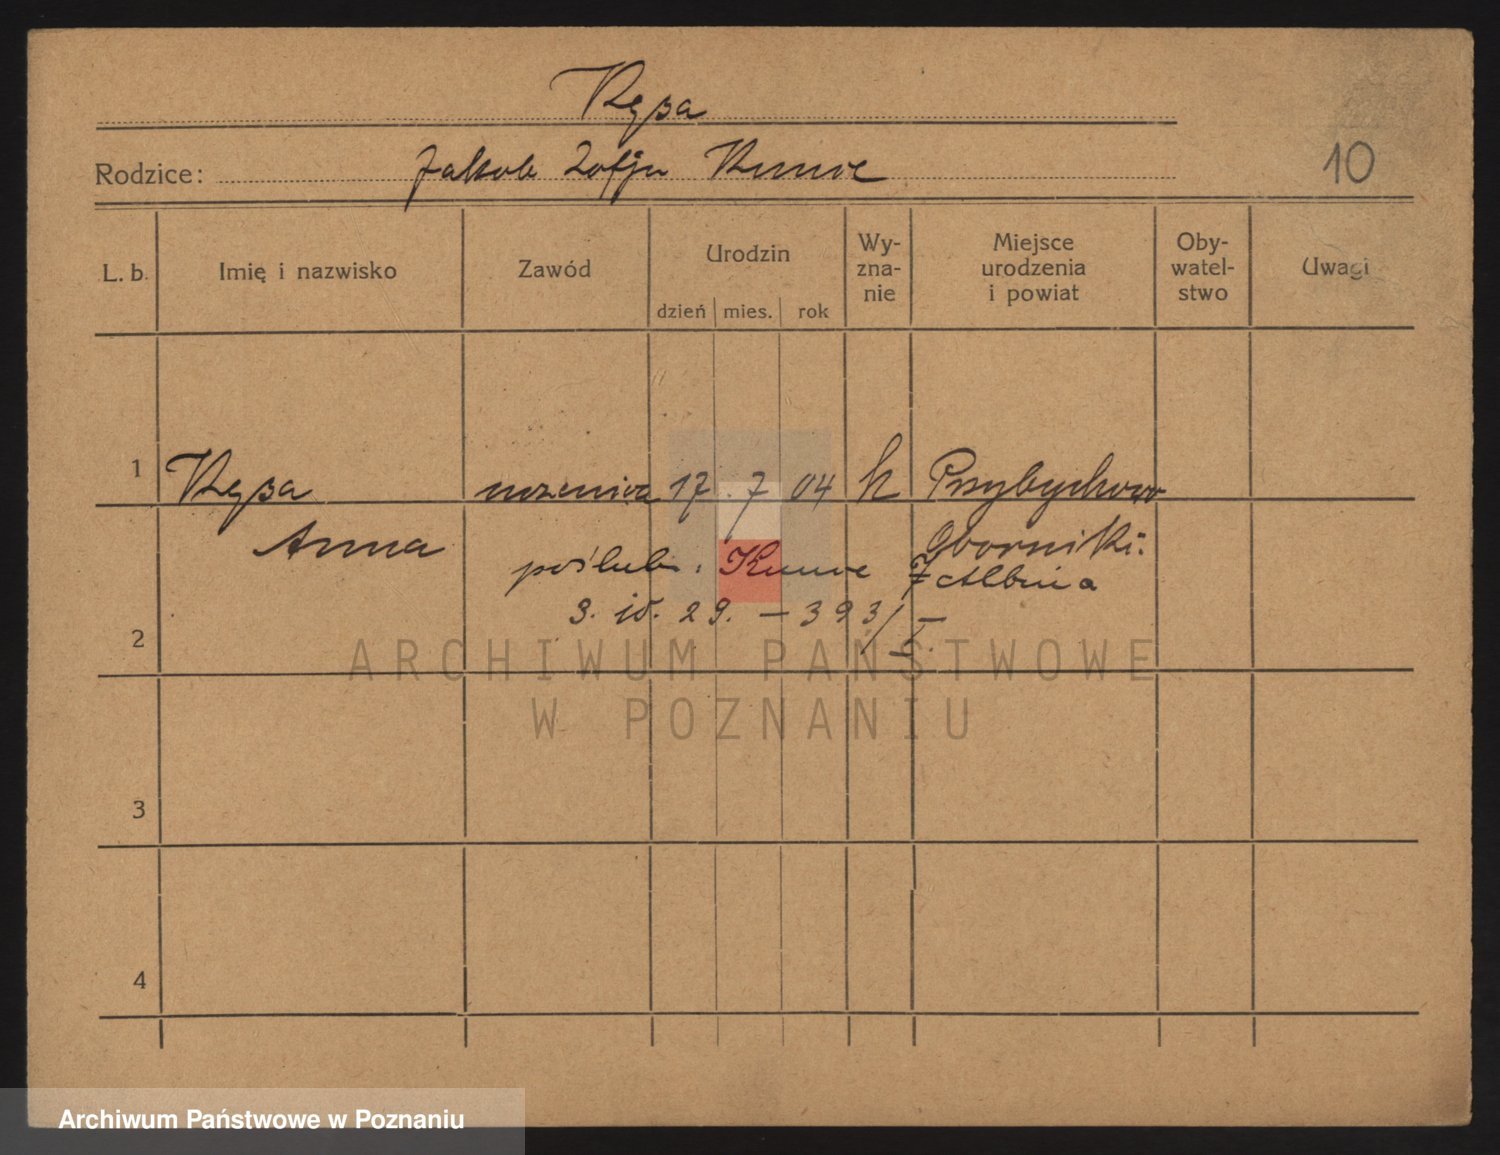 Kępa
Rodzice: Jakob Zofja Kunce
10
L. b. Imię i nazwisko Zawód Urodzin dzień mies. rok Wy-zna-nie Miejsce urodzenia i powiat Oby-watel-stwo Uwagi
1 Kępa 17. 7 04 k Przybychowo
Anna Oborniki.
poślub. Kunce
3. 10. 29. – 393/I.
2
ARCHIWUM PAŃSTWOWE
W POZNANIU
3
4
Archiwum Państwowe w Poznaniu